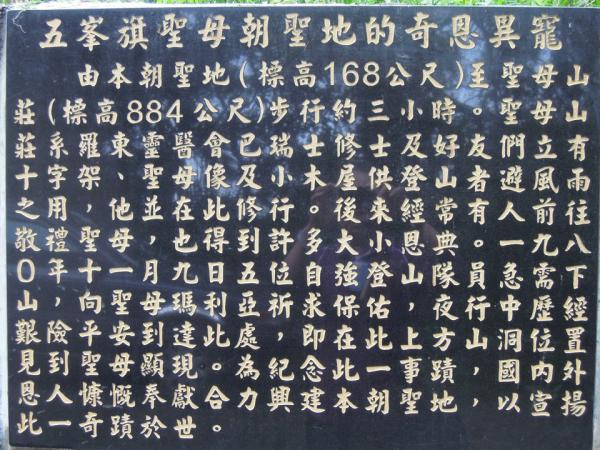 五峯旗聖母朝聖地的奇恩異寵
由本朝聖地(標高168公尺)至聖母山
莊(標高884公尺)步行約三小時。聖母山
莊系羅東靈醫會已瑞士修士及好友們立有
十字架、聖母像及小木屋供登山者避風雨
之用,他並在此修行。後來經常有人前往
敬禮聖母,也得到許多大小恩典。一九八
0年十一月九日五位自強登山隊員急需下
山,向聖母瑪利亞祈求保佑,夜行中歷經
艱險平安到達此處,即在此上方山洞位置
見到聖母顯現。為紀念此一事蹟,國內外
恩人慷慨奉獻合力興建本朝聖地,以宣揚
此一奇蹟於世。